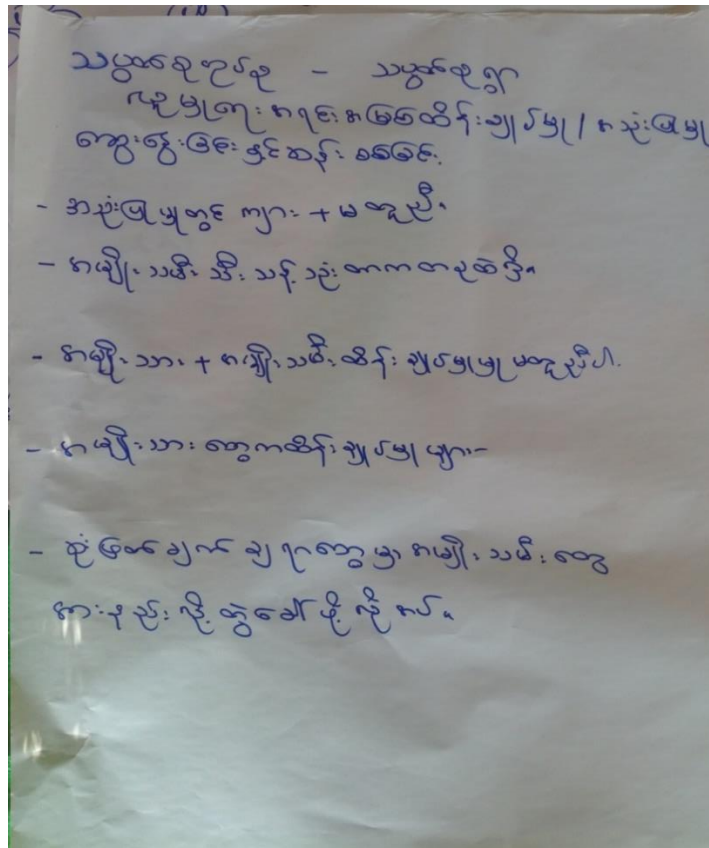 သပွတ်စုအုပ်စု - သပွတ်စုရွာ
လူမှုရေး အရင်းအမြစ်ထိန်းချုပ်မှု / အသုံးပြုမှု
ဆွေးနွေးခြင်းနှင့်ဆန်းစစ်ခြင်း
- အသုံးပြုမှုတွင် ကျား + မ တူညီ။
- အမျိုးသမီး သီးသန့်သုံးတာကတခုထဲဒီ။
- အမျိုးသား + အမျိုးသမီး ထိန်းချုပ်မှုမှု မတူညီပါ.
- အမျိုးသားတွေကထိန်းချုပ်မှုများ-
- ဆုံးဖြတ်ချက်ချရာတွေမှာ အမျိုးသမီးတွေ
အားနည်းလို့တွဲခေါ်ဖို့လိုအပ်။